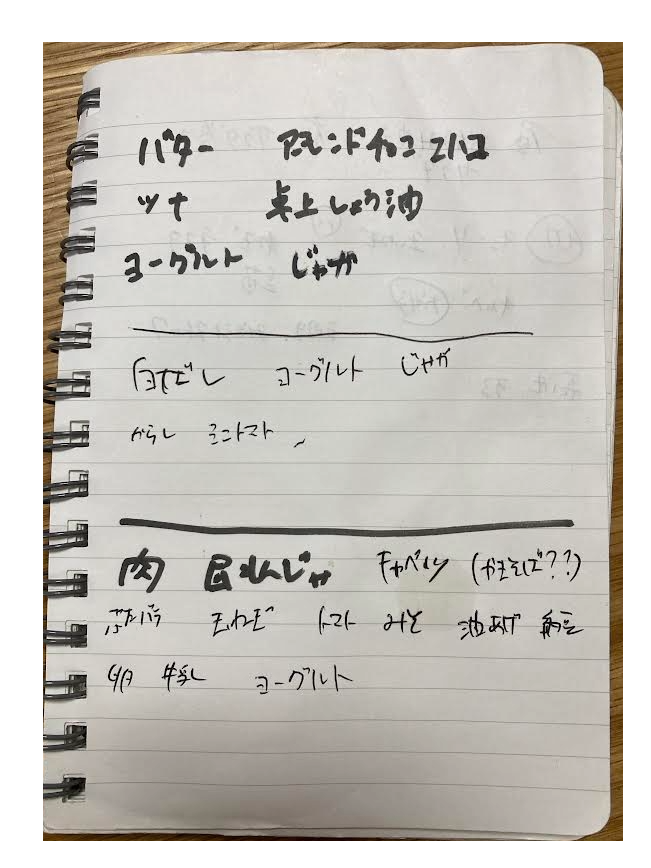 バター アーモンドチョコ 2ハコ
ツナ 卓上しょう油
ヨーグルト じゃが
白だし ヨーグルト じゃが
からし ミニトマト
肉 にんじん キャベツ (やきそば??)
ぶたバラ 玉ねぎ トマト みそ 油あげ 納豆
卵 牛乳 ヨーグルト